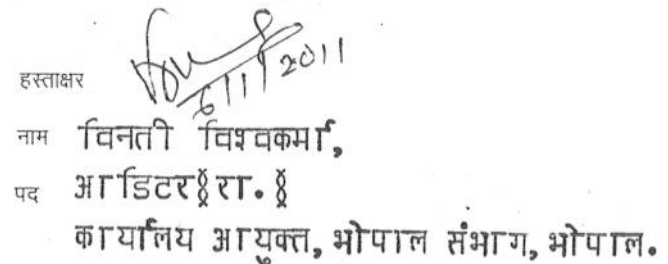 हस्ताक्षर 6/1/2011
नाम विनती विश्वकर्मा,
पद आडिटर§रा.§
कार्यालय आयुक्त, भोपाल संभाग, भोपाल.